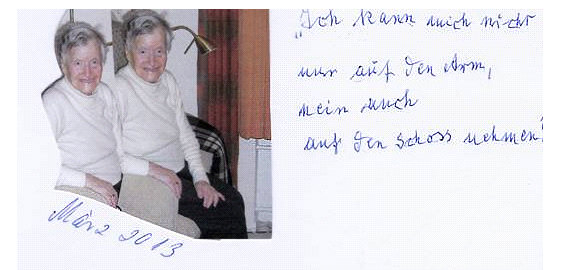 „Ich kann mich nicht
nur auf den Arm,
nein auch
auf den Schoss nehmen"
März 2013